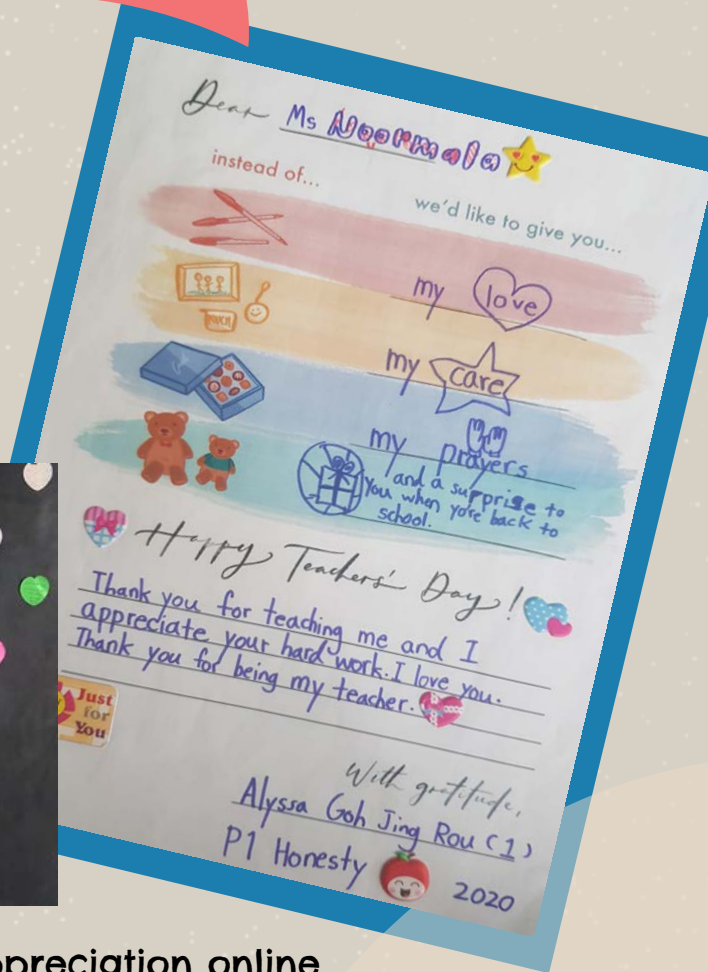 Dear Ms Noormala
instead of...
we'd like to give you...
my love
my care
my prayers
and a surprise to
you when yo're back to
school.
Happy Teachers' Day!
Thank you for teaching me and I
appreciate your hard work. I love you.
Thank you for being my teacher.
Just
for
You
With gratitude,
Alyssa Goh Jing Rou (1)
P1 Honesty
2020
preciation online